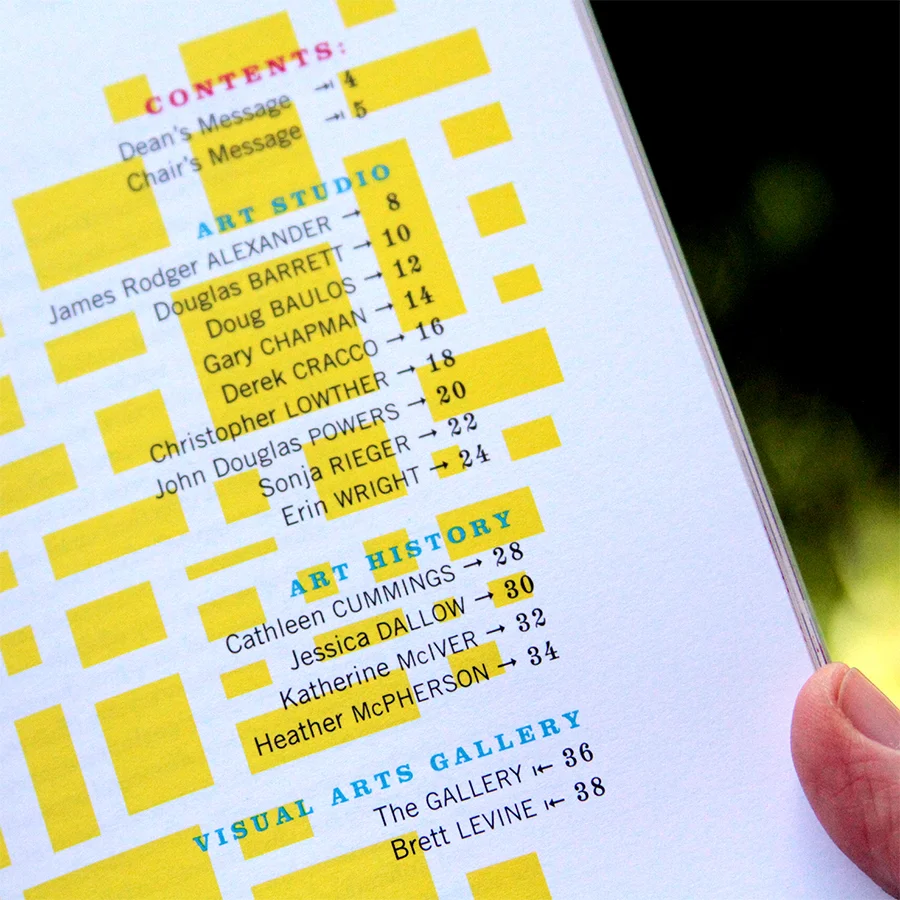 CONTENTS:
Dean's Message ⇥ 4
Chair's Message ⇥ 5
ART STUDIO
James Rodger ALEXANDER → 8
Douglas BARRETT → 10
Doug BAULOS → 12
Gary CHAPMAN → 14
Derek CRACCO → 16
Christopher LOWTHER → 18
John Douglas POWERS → 20
Sonja RIEGER → 22
Erin WRIGHT → 24
ART HISTORY
Cathleen CUMMINGS → 28
Jessica DALLOW → 30
Katherine McIVER → 32
Heather McPHERSON → 34
VISUAL ARTS GALLERY
The GALLERY ⇤ 36
Brett LEVINE ⇤ 38